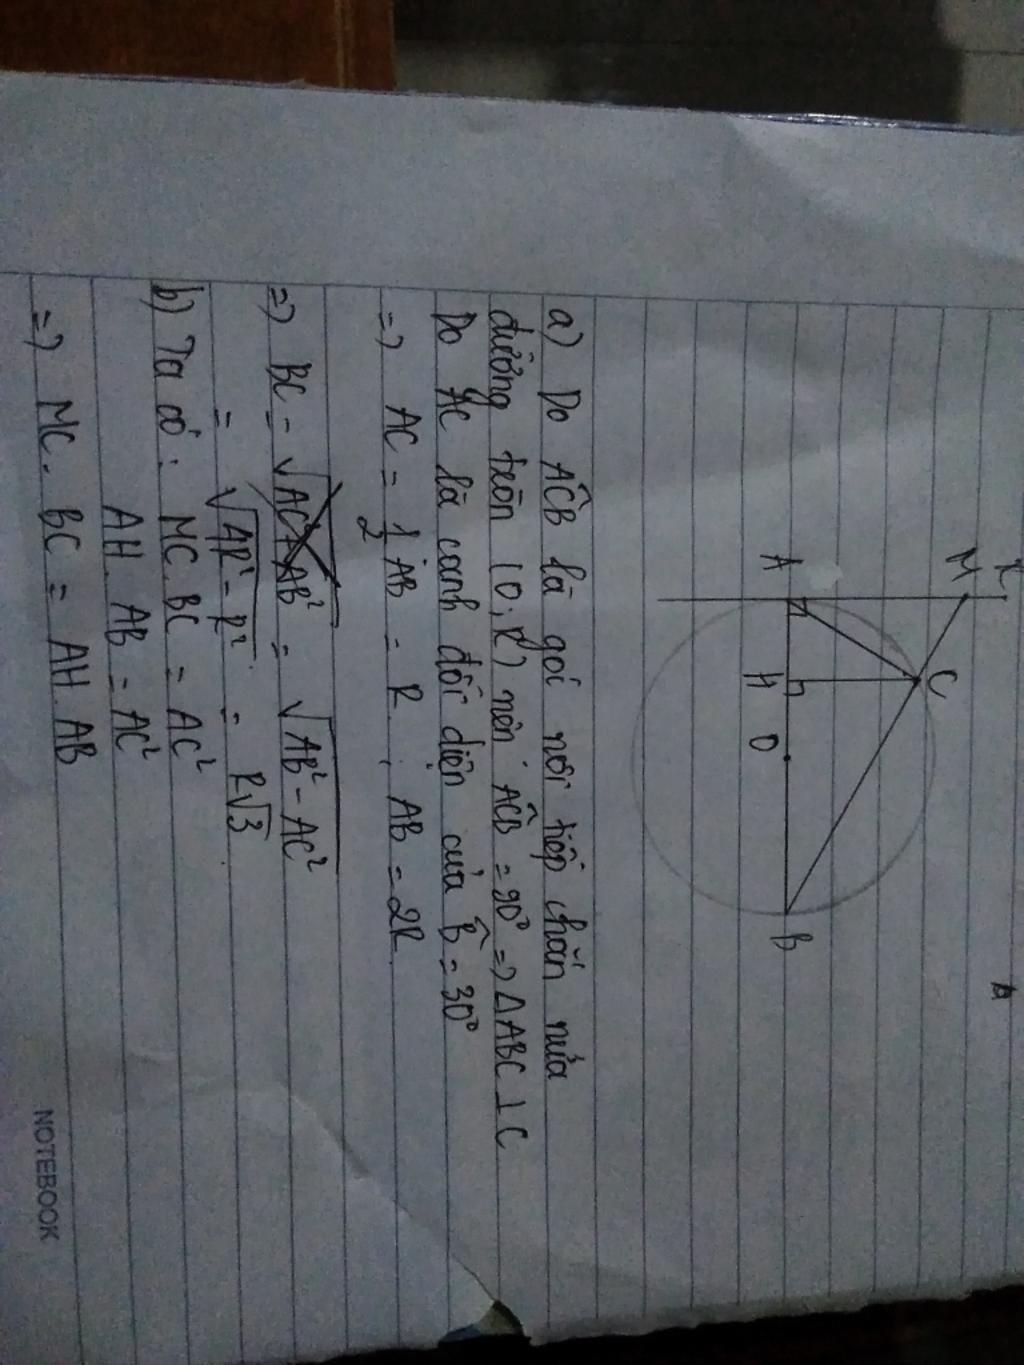 x
M
C
A
H
O
B
a) Do ACB là góc nội tiếp chắn nửa
đường tròn (O; R) nên ACB = 90° => ΔABC ⊥ C
Do AC là cạnh đối diện của B = 30°
=> AC = 1/2 AB = R ; AB = 2R
=> BC = √AC²+AB² = √AB² - AC²
= √4R² - R² = R√3
b) Ta có: MC.BC = AC²
AH. AB = AC²
=> MC. BC = AH. AB
NOTEBOOK